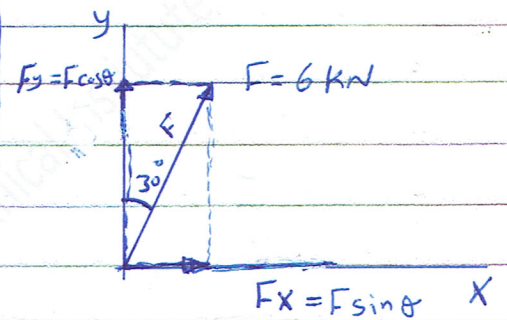 y
Fy = Fcosθ
F = 6 KN
F
30°
Fx = F sinθ
X